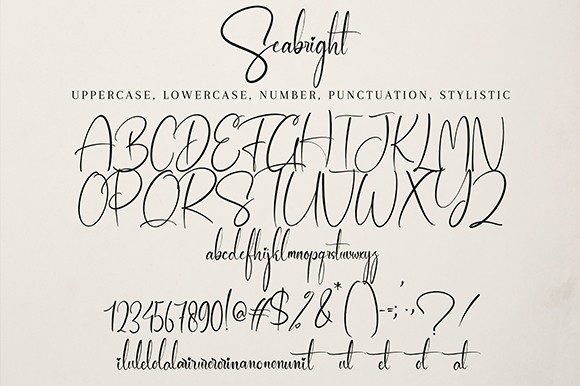 Seabright
UPPERCASE, LOWERCASE, NUMBER, PUNCTUATION, STYLISTIC
ABCDEFGHIJKLMN
OPQRSTUVWXYZ
abcdefghijklmnopqrstuvwxyz
1234567890!@#$%&*()-=;'.,?/
ut et ot at